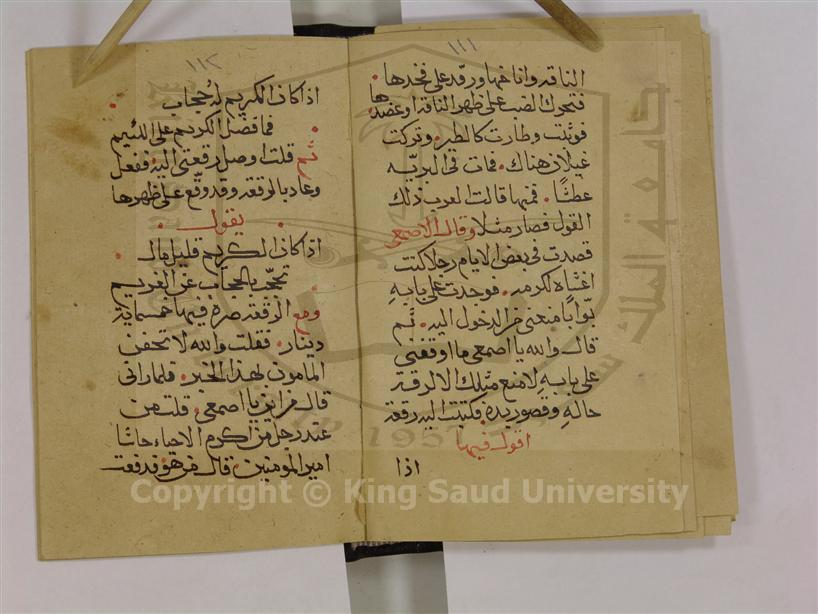 ١١١
الناقه واناخها ورقد على فخدها
فتحرك الضب على ظهر الناقه او عضدها
فوثبت وطارت كالطير وتركت
غيلان هناك فمات في البريه
عطشًا فمنها قالت العرب ذلك
القول فصار مثلا وقال الاصمعي
قصدت في بعض الايام رجلا كنت
اغشاه لكرمه فوجدت على بابه
بوّابًا منعني من الدخول اليه ثم
قال والله يا اصمعي ما اوقفني
على بابه لامنع مثلك الا لرقة
حاله وقصور يده فكتبت اليه رقعة
اقول فيها
اذا
١١٢
اذا كان الكريم له حجاب
فما فضل الكريم على اللئيم
ثم قلت اوصل رقعتي اليه ففعل
وعاد بالرقعه وقد وقّع على ظهرها
يقول
اذا كان الكريم قليل مال
تحجّب بالحجاب عن الغريم
ومع الرقعه صرة فيها خمسماية
دينار فقلت والله لاتحفن
المامون بهذا الخبر فلما راني
قال من اين يا اصمعي قلت من
عند رجل من اكرم الاحياء حاشا
امير المومنين قال من هو فدفعت
جامعة الملك سعود
1957
Copyright © King Saud University